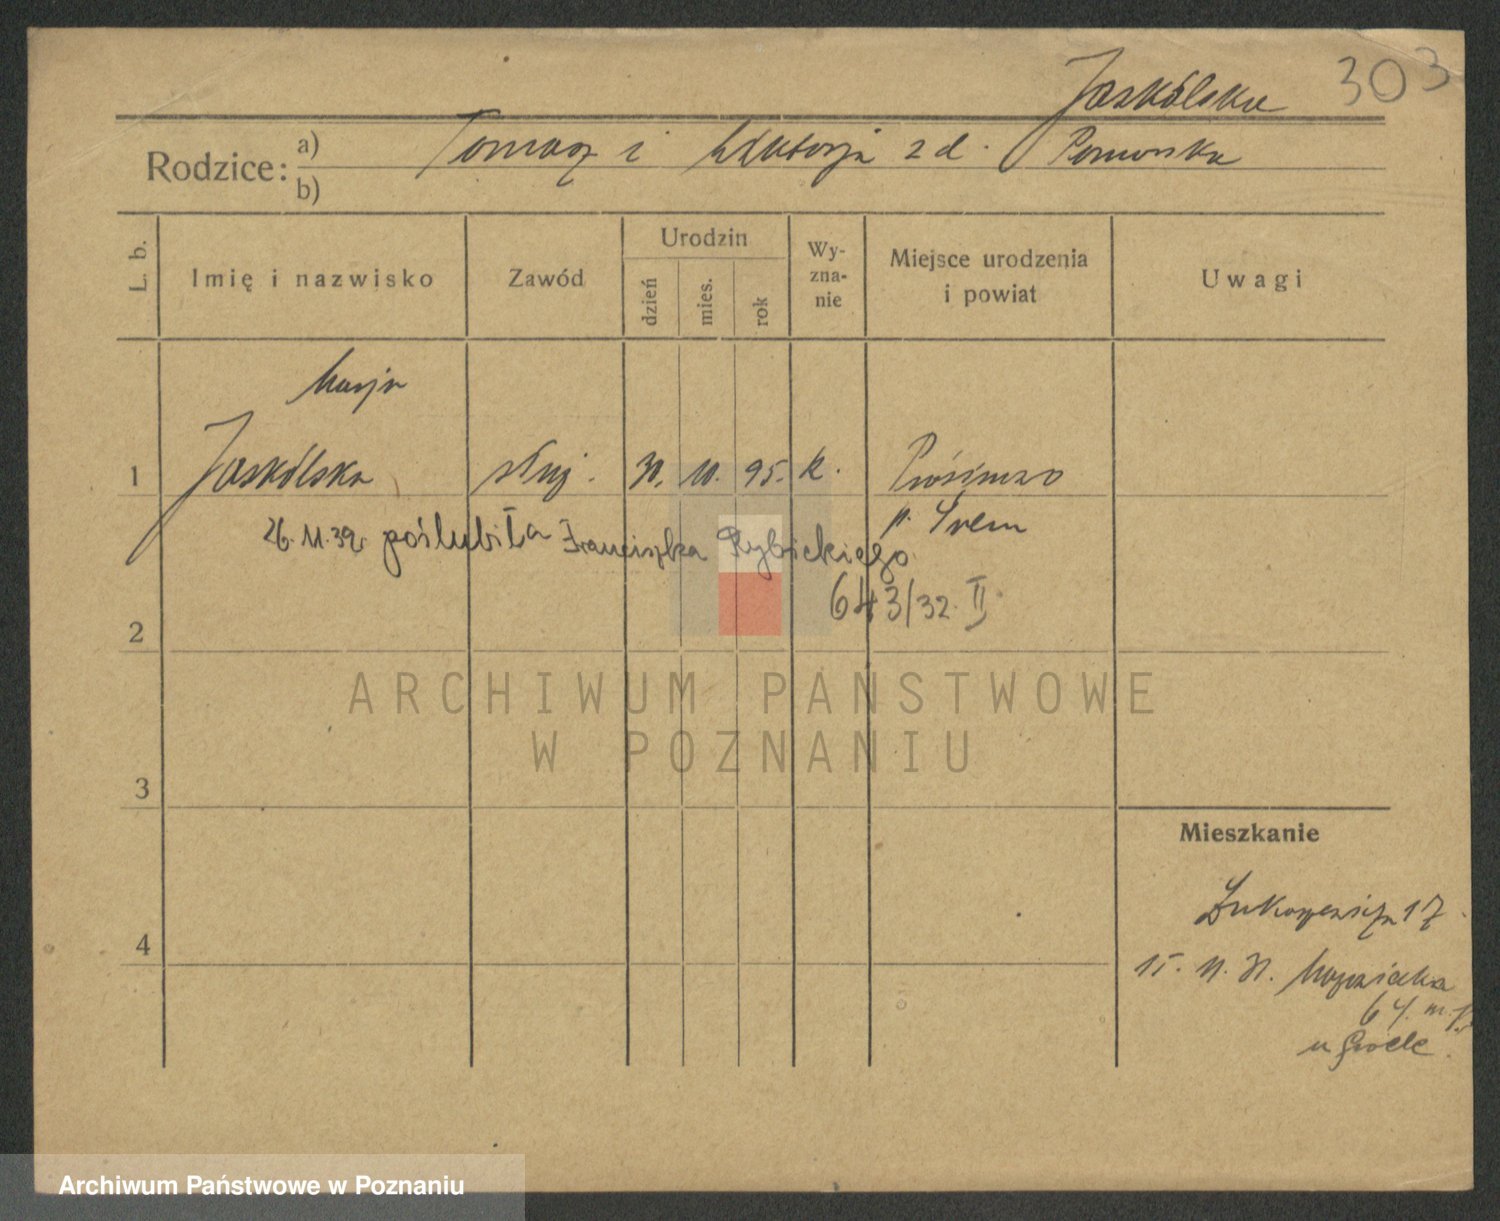 Jaskólska 303
Rodzice: a) Tomasz i Wiktorja z d. Pomorska
b)
L. b.
Imię i nazwisko
Zawód
Urodzin
dzień
mies.
rok
Wy-
zna-
nie
Miejsce urodzenia
i powiat
Uwagi
Marja
1 Jaskólska służ. 30. 10. 95. k.
p. Śrem
26.11.32 poślubiła Franciszka Rybickiego
643/32 II
2
3
4
Mieszkanie
17
15. 11. 31.
64. m.
u
ARCHIWUM PAŃSTWOWE
W POZNANIU
Archiwum Państwowe w Poznaniu